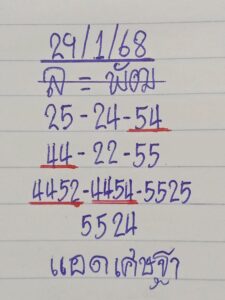 29/1/68
ล = พัดม
25-24-54
44-22-55
4452-4454-5525
5524
แอดเศษฐา